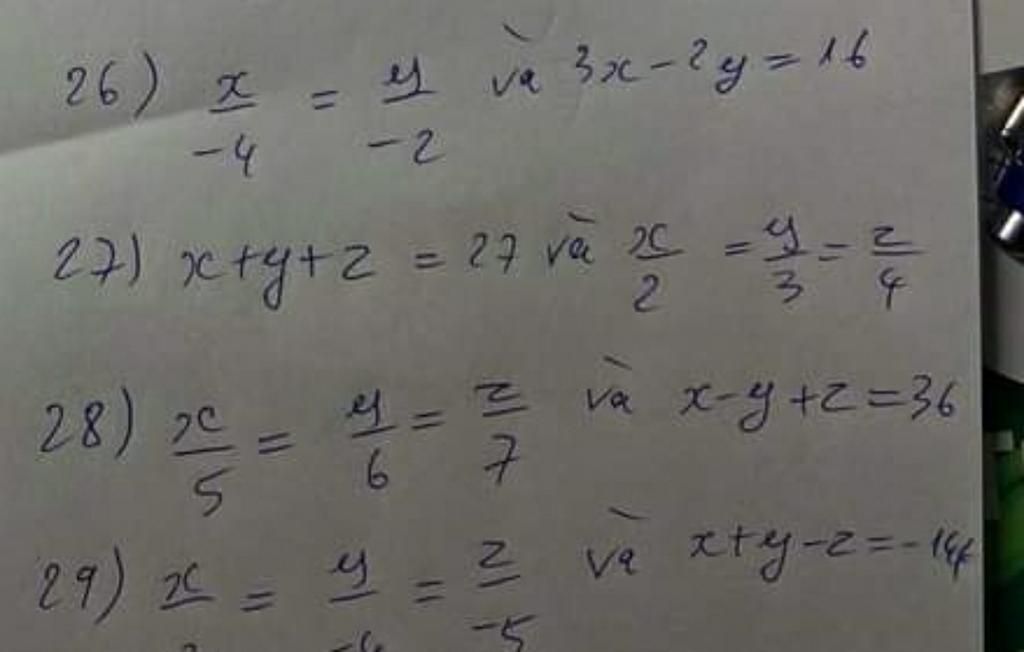 26) x/-4 = y/-2 và 3x-2y=16
27) x+y+z = 27 và x/2 = y/3 = z/4
28) x/5 = y/6 = z/7 và x-y+z=36
29) x/ = y/ = z/-5 và x+y-z=